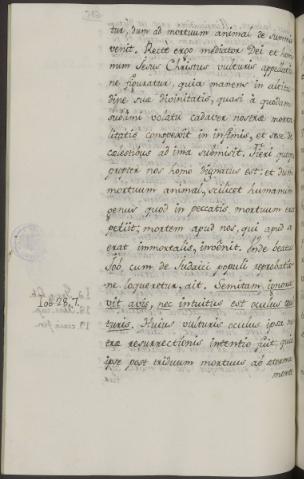 tur, dum ad mortuum animal se summit
venit. Rectè ergo mediator Dei et ho-
minum Jesus Christus vulturis appellatio-
ne figuratur, quia manens in altitu-
dine suæ divinitatis, quasi à quodam
sublimi volatu cadaver nostræ morta-
litatis conspexit in infimis, et sese de
coelestibus ad ima submisit. Fieri quippe
propter nos homo dignatus est; et dum
mortuum animal, scilicet humanum
genus quod in peccatis mortuum erat
petiit, mortem apud nos, qui apud se
erat immortalis, invenit. Unde beatus
Job, cum de Judaici populi reprobatio-
ne loqueretur, ait. Semitam ignora-
Iob 28, 7.
vit avis, nec intuitus est oculus vul-
turis. Huius vulturis oculus ipsa nos-
træ resurrectionis intentio fuit, quia
ipse post triduum mortuus ab æterna
morte